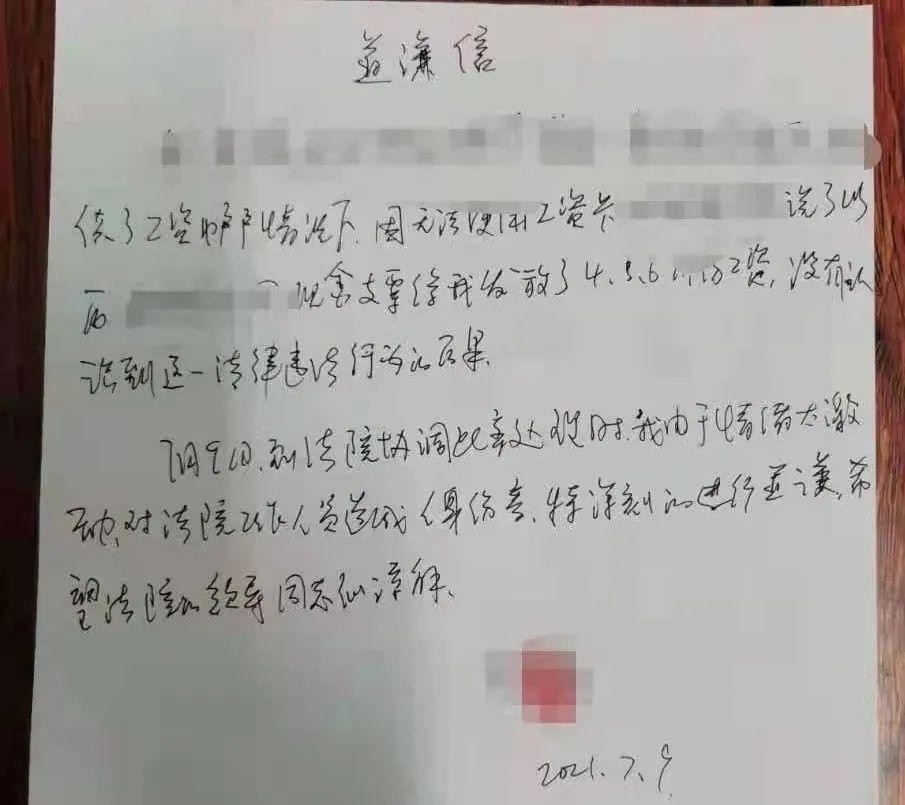 道谦信
结了工资帐户情况下,因无法使用工资卡 说了以
后 现金支票给我发放了4、5、6 工资,没有认
识到这一法律违法行为的后果。
7月9日,到法院协调此案处理时,我由于情绪太激
动,对法院工作人员造成人身伤害,特深刻的进行道谦,希
望法院的领导同志们谅解。
2021.7.9